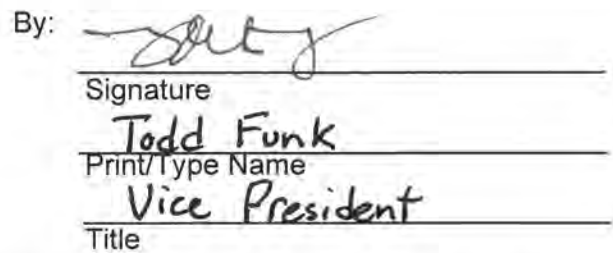 By:
Signature
Todd Funk
Print/Type Name
Vice President
Title